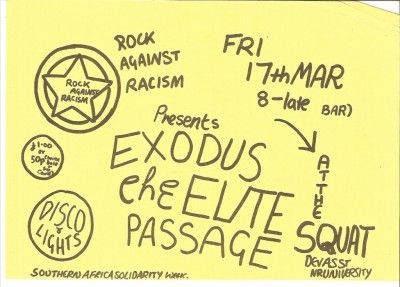 ROCK
AGAINST
RACISM
ROCK
AGAINST
RACISM
FRI
17th MAR
8-late BAR)
Presents
EXODUS
the ELITE
PASSAGE
£1.00
or
50p
AT THE
SQUAT
DEVAS ST
NR UNIVERSITY
DISCO
&
LIGHTS
SOUTHERN AFRICA SOLIDARITY WEEK.